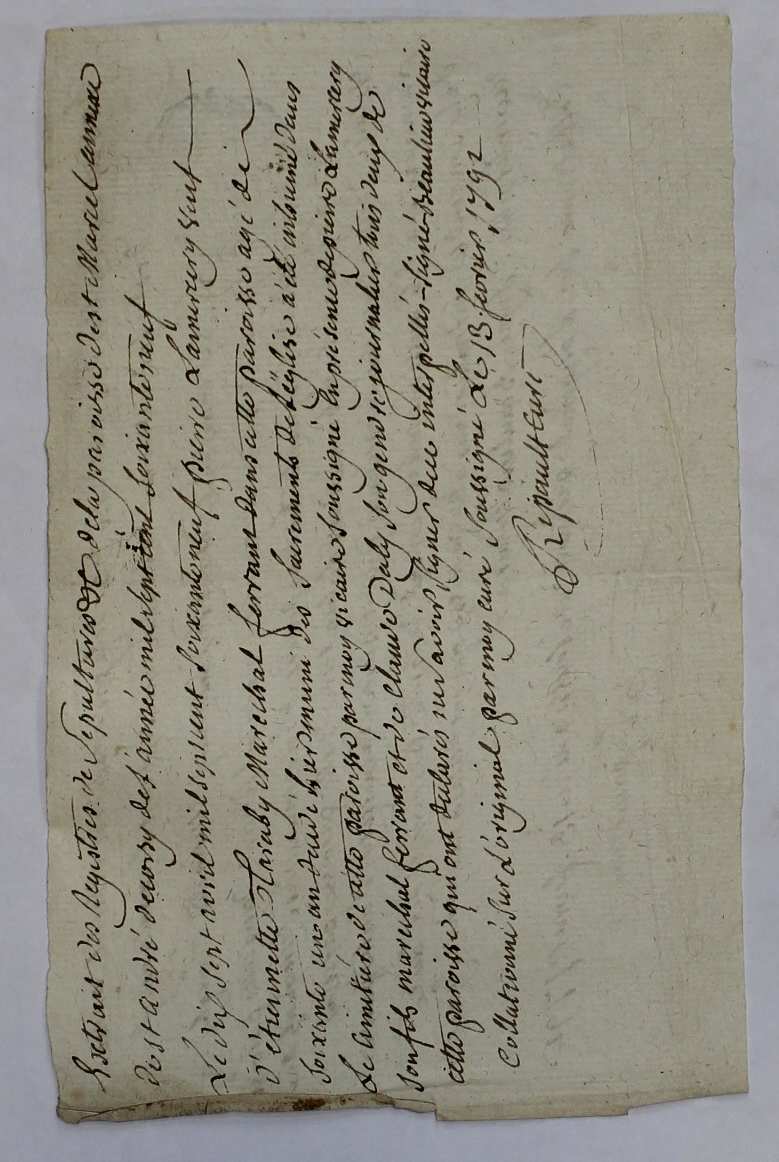 Extrait des Registres de Sepultures de la paroisse de st Marcel annexe
de st andré decossy de l'année mil sept cent soixante neuf
Le dix sept avril mil sept cent soixante neuf pierre Lamercery veuf
d'étiennette Marechal ferrant dans cette paroisse agé de
soixante un an decédé hier muni des sacrements de l'église a été inhumé dans
Le cimitière de cette paroisse par moy vicaire soussigné en présence de pierre Lamercery
son fils marechal ferrant et de claude Daly son gendre journalier tous deux de
cette paroisse qui ont declarés ne savoir signer de ce interpellés - signé Beaulieu vicaire
Collationné sur L'original par moy curé soussigné Le 13 fevrier 1792
Repault curé